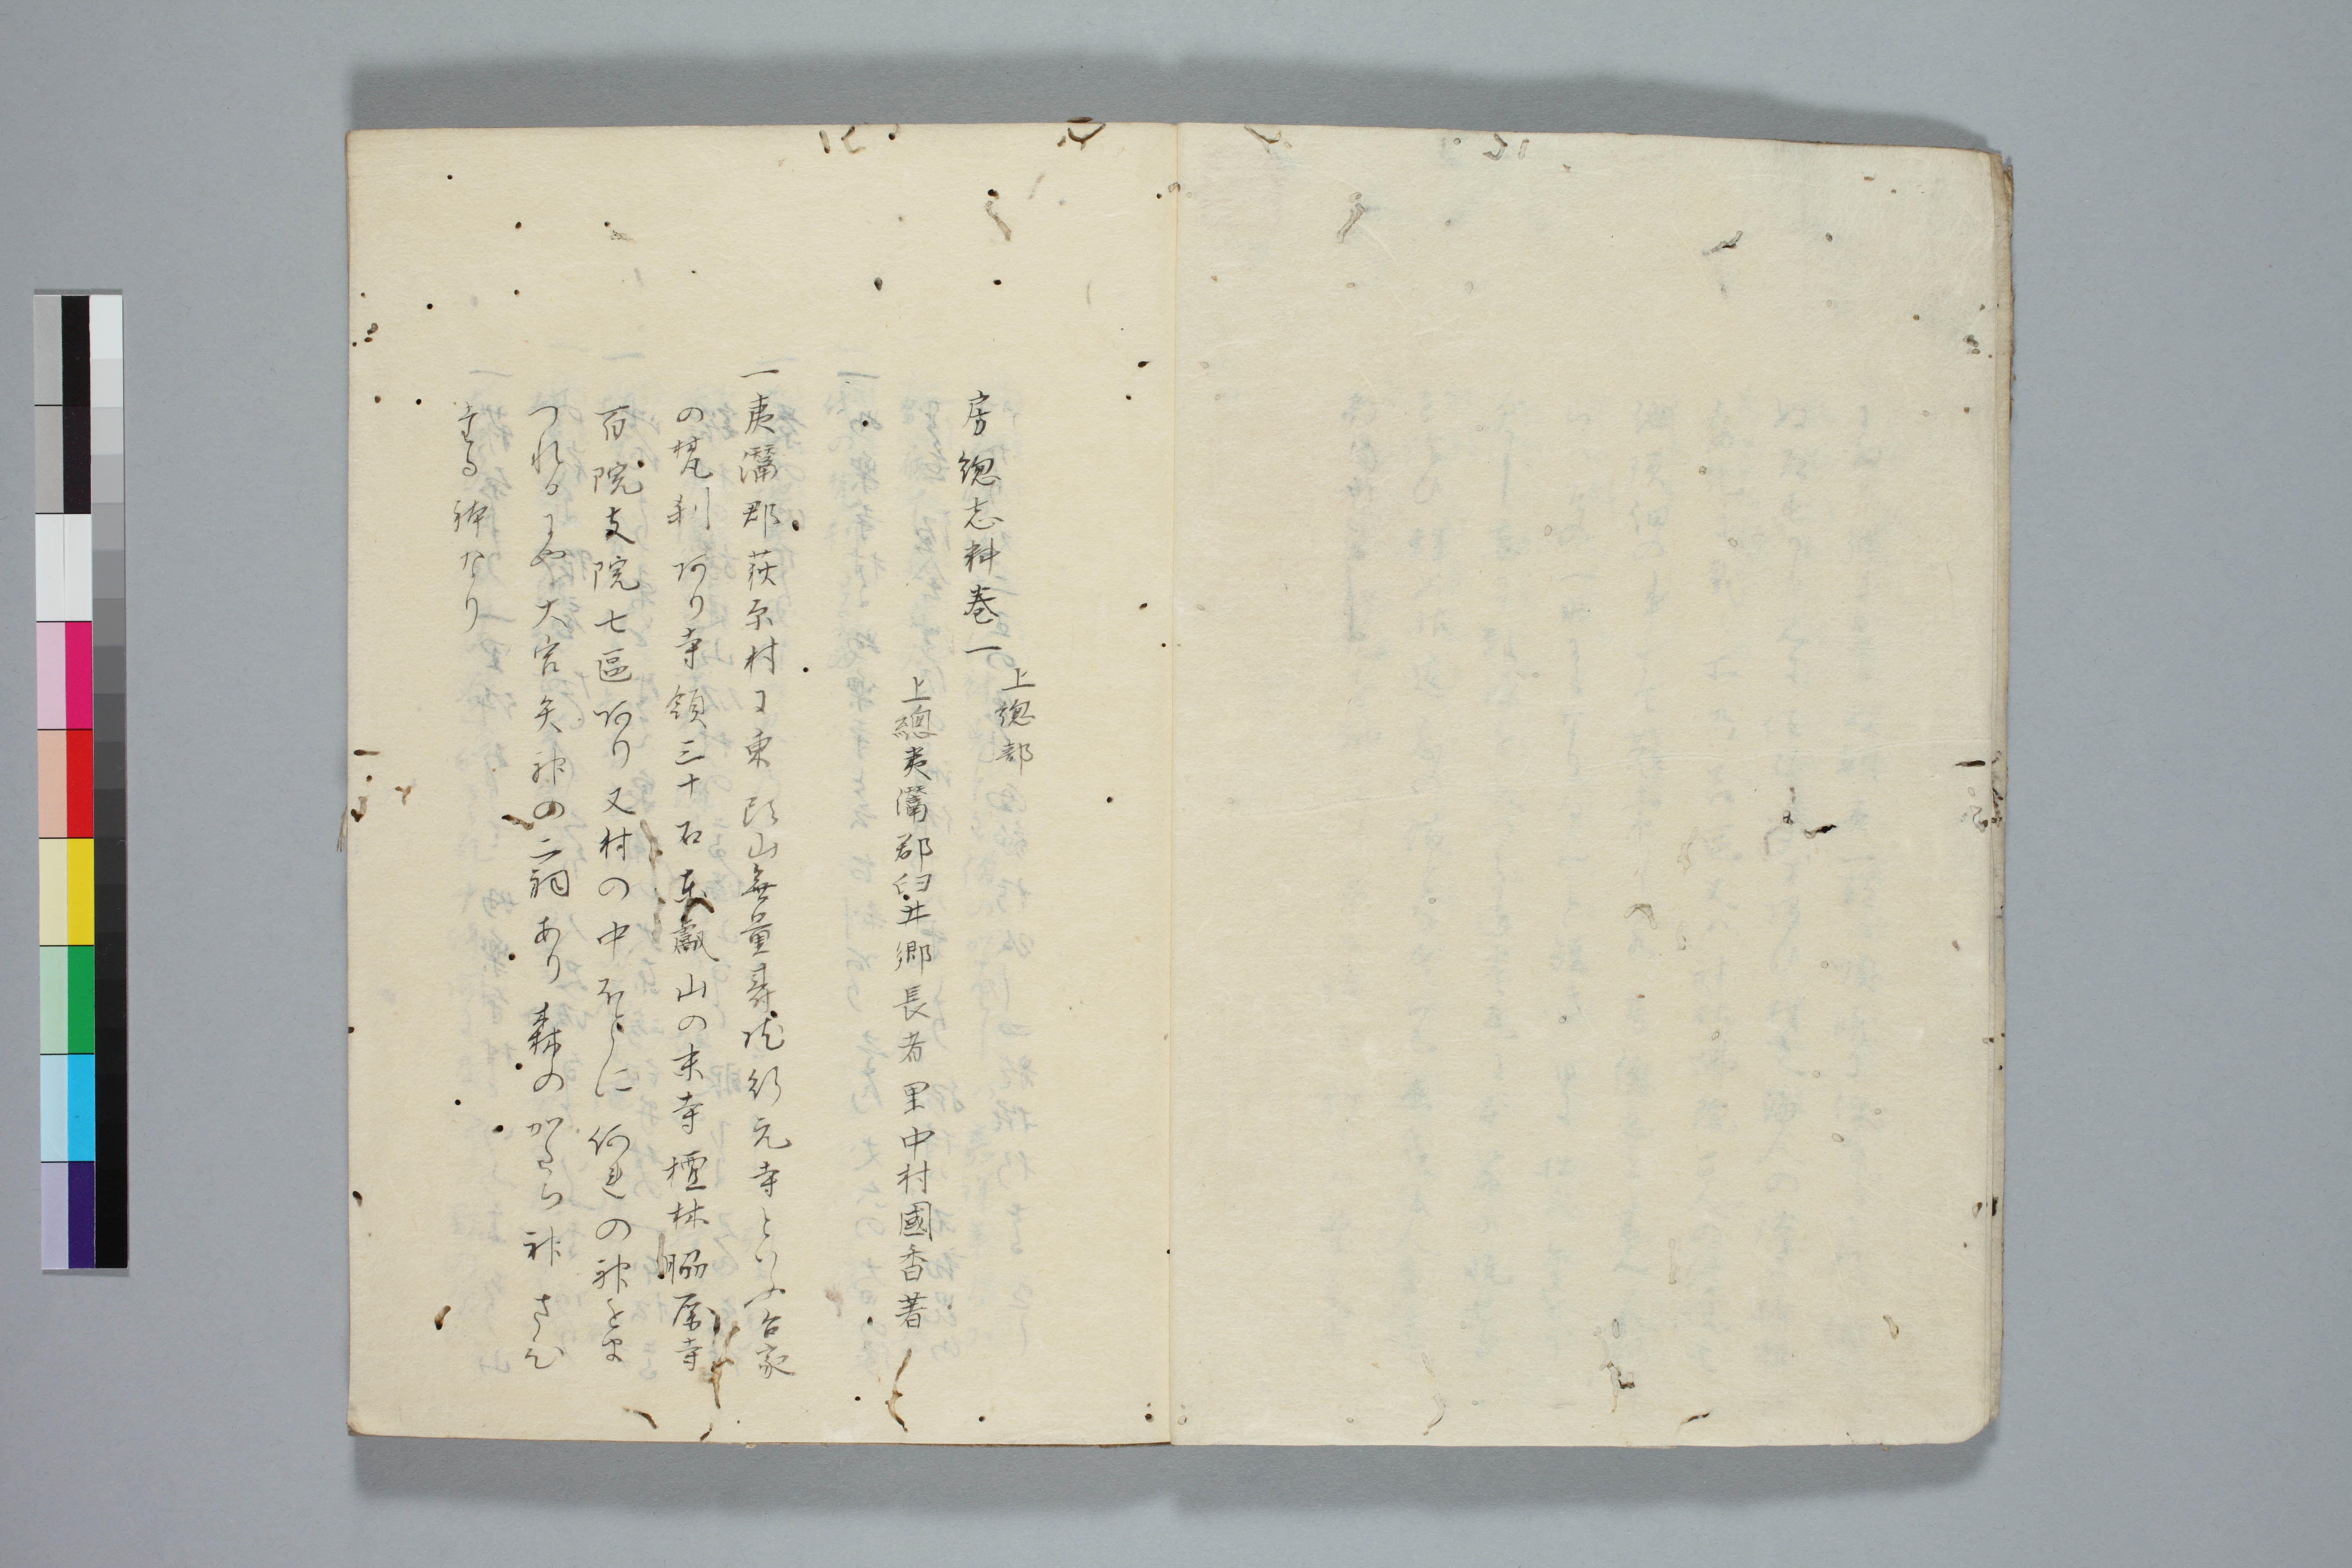 上總部
房總志料巻一
上總夷灊郡臼井郷長者里中村國香著
一夷灊郡荻原村に東頭山無量壽院行元寺といふ台家
の梵刹あり寺領三十石東叡山の末寺檀林脇房寺
百院支院七區あり又村の中ほどに何れの神をま
つれるにや大宮矢神の二祠あり森のかたち神さび
する神なり